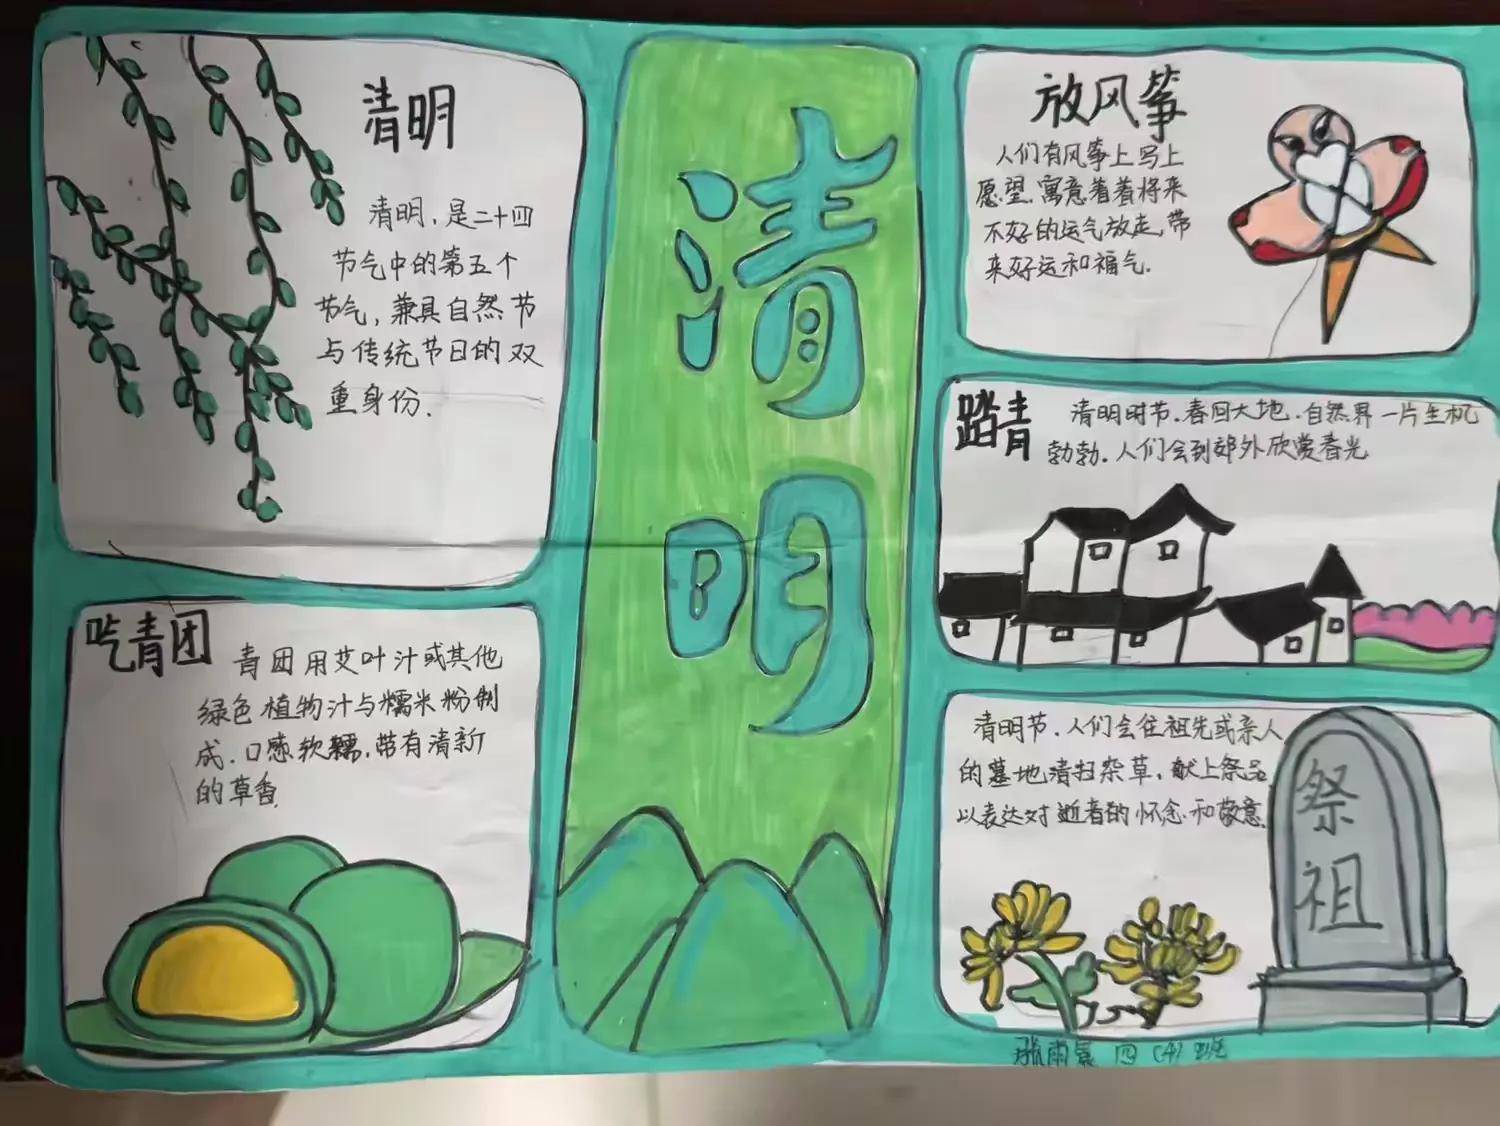 清明
清明，是二十四
节气中的第五个
节气，兼具自然节
与传统节日的双
重身份.
吃青团
青团用艾叶汁或其他
绿色植物汁与糯米粉制
成.口感软糯,带有清新
的草香.
清
明
放风筝
人们有风筝上写上
愿望.寓意着着将来
不好的运气放走,带
来好运和福气.
踏青
清明时节.春回大地.自然界一片生机
勃勃.人们会到郊外欣赏春光
清明节.人们会住祖先或亲人
的墓地清扫杂草.献上祭品
以表达对逝者的怀念.和敬意.
祭
祖
张雨 四(4)班